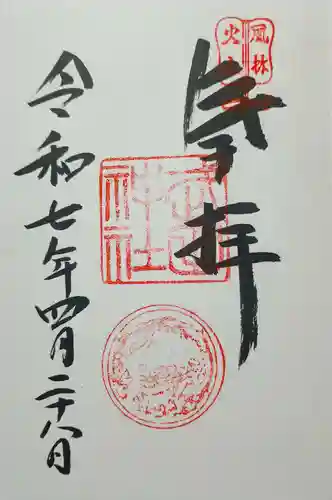 風林
火山
奉拝
武田神社
令和七年四月二十八日